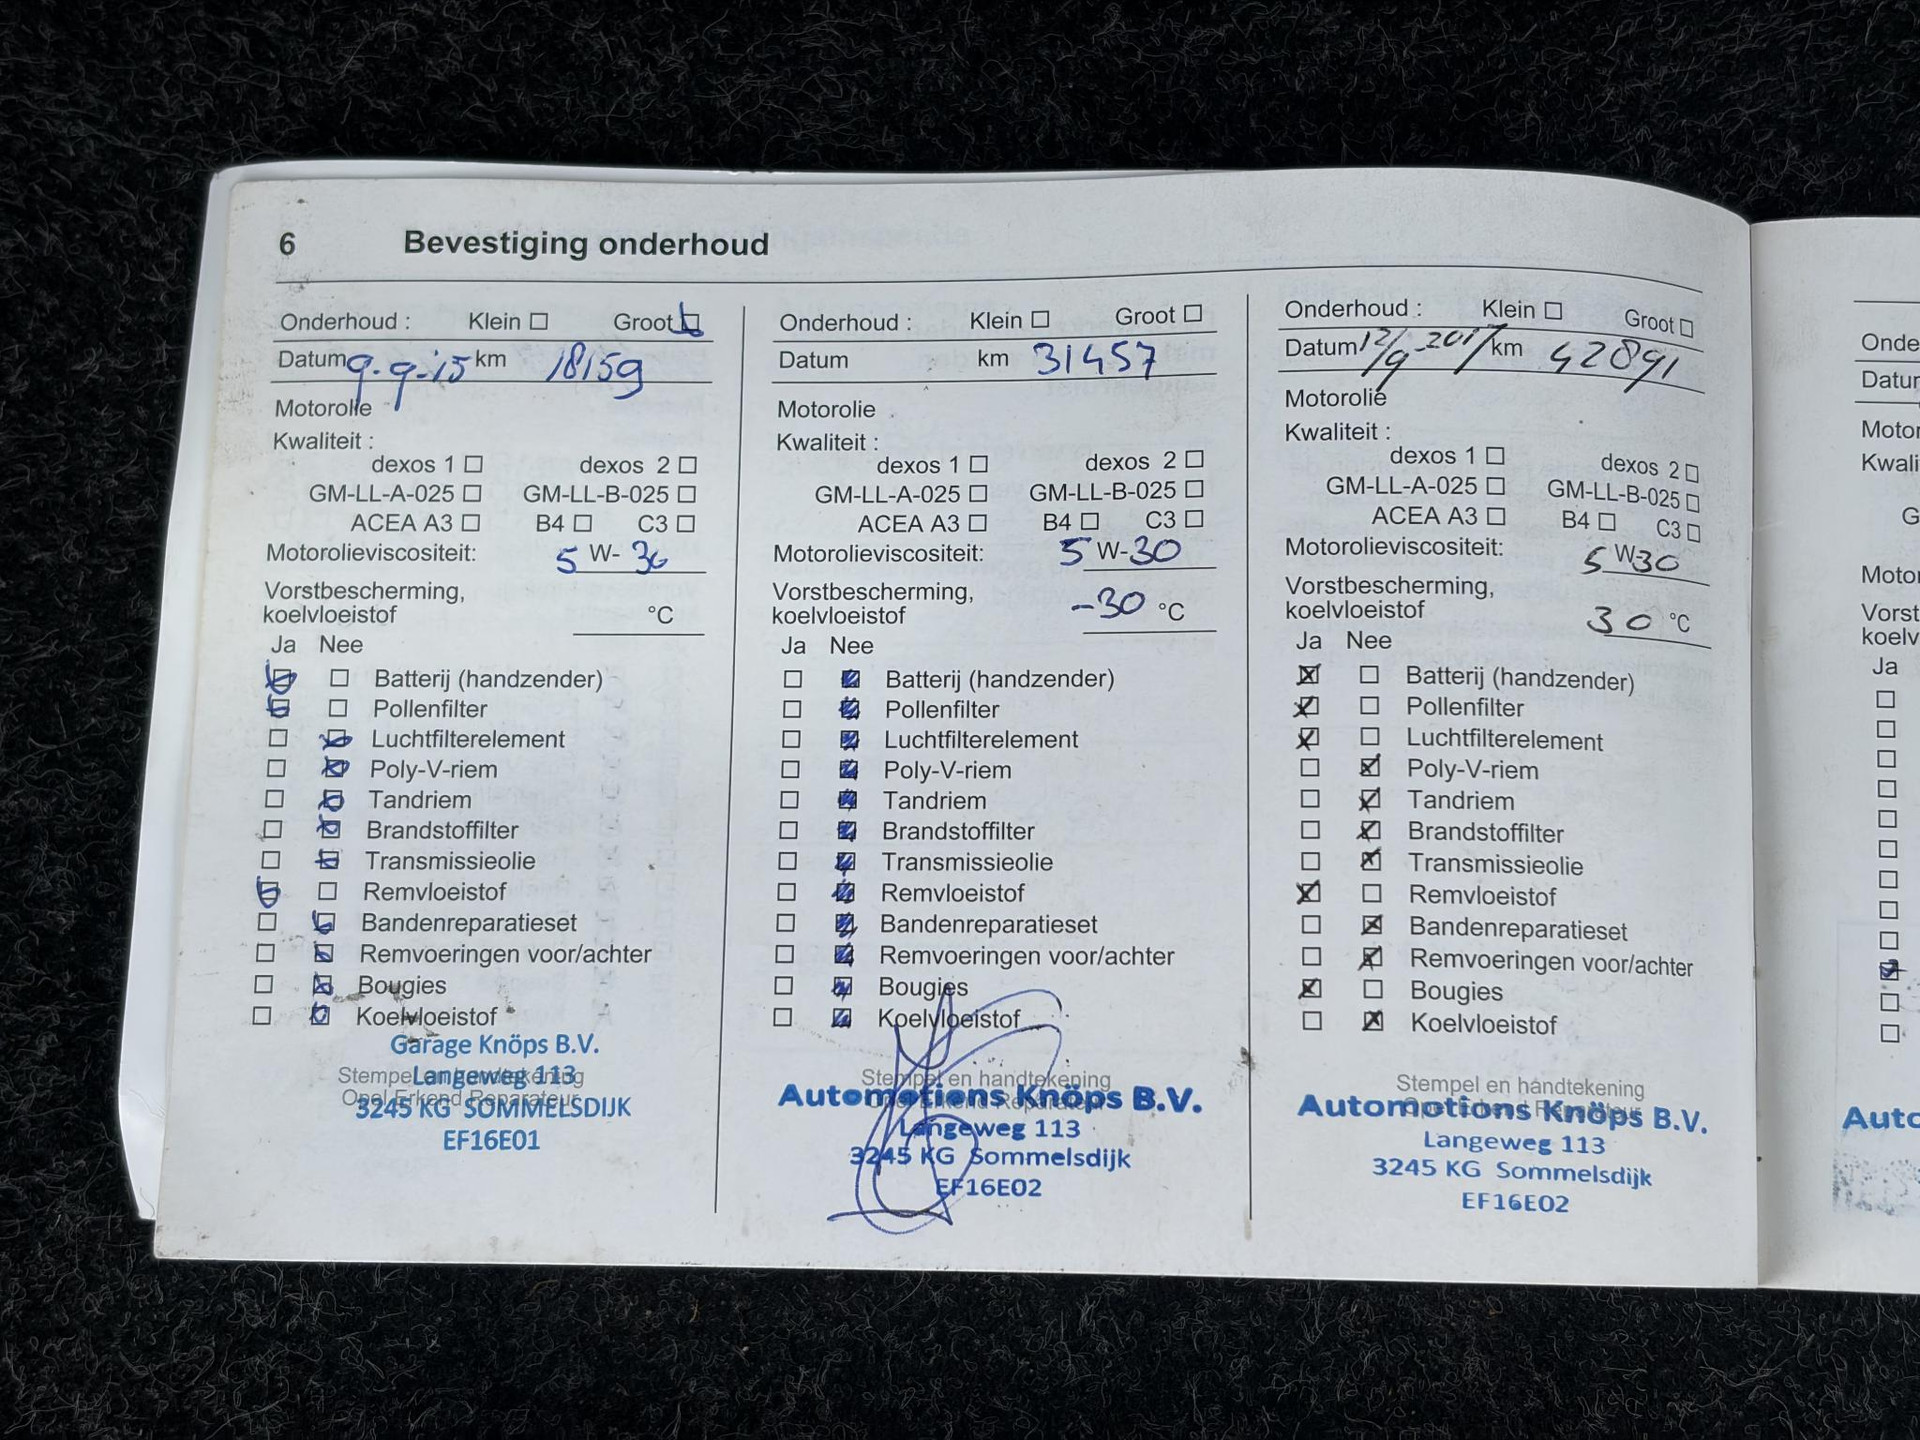 6 Bevestiging onderhoud
Onderhoud : Klein ☐ Groot ☑
Datum 9-9-15 km 18159
Motorolie
Kwaliteit :
dexos 1 ☐ dexos 2 ☐
GM-LL-A-025 ☐ GM-LL-B-025 ☐
ACEA A3 ☐ B4 ☐ C3 ☐
Motorolieviscositeit: 5 W- 30
Vorstbescherming,
koelvloeistof °C
Ja Nee
☑ ☐ Batterij (handzender)
☑ ☐ Pollenfilter
☐ ☑ Luchtfilterelement
☐ ☑ Poly-V-riem
☐ ☑ Tandriem
☐ ☑ Brandstoffilter
☐ ☑ Transmissieolie
☑ ☐ Remvloeistof
☐ ☑ Bandenreparatieset
☐ ☑ Remvoeringen voor/achter
☐ ☑ Bougies
☐ ☑ Koelvloeistof
Stempel en handtekening
Opel Erkend Reparateur
Garage Knöps B.V.
Langeweg 113
3245 KG SOMMELSDIJK
EF16E01
Onderhoud : Klein ☐ Groot ☐
Datum km 31457
Motorolie
Kwaliteit :
dexos 1 ☐ dexos 2 ☐
GM-LL-A-025 ☐ GM-LL-B-025 ☐
ACEA A3 ☐ B4 ☐ C3 ☐
Motorolieviscositeit: 5 W-30
Vorstbescherming,
koelvloeistof -30 °C
Ja Nee
☐ ☑ Batterij (handzender)
☐ ☑ Pollenfilter
☐ ☑ Luchtfilterelement
☐ ☑ Poly-V-riem
☐ ☑ Tandriem
☐ ☑ Brandstoffilter
☐ ☑ Transmissieolie
☐ ☑ Remvloeistof
☐ ☑ Bandenreparatieset
☐ ☑ Remvoeringen voor/achter
☐ ☑ Bougies
☐ ☑ Koelvloeistof
Stempel en handtekening
Opel Erkend Reparateur
Automotions Knöps B.V.
Langeweg 113
3245 KG Sommelsdijk
EF16E02
Onderhoud : Klein ☐ Groot ☐
Datum 12/9-2017 km 42891
Motorolie
Kwaliteit :
dexos 1 ☐ dexos 2 ☐
GM-LL-A-025 ☐ GM-LL-B-025 ☐
ACEA A3 ☐ B4 ☐ C3 ☐
Motorolieviscositeit: 5 W-30
Vorstbescherming,
koelvloeistof 30 °C
Ja Nee
☒ ☐ Batterij (handzender)
☒ ☐ Pollenfilter
☒ ☐ Luchtfilterelement
☐ ☒ Poly-V-riem
☐ ☒ Tandriem
☐ ☒ Brandstoffilter
☐ ☒ Transmissieolie
☒ ☐ Remvloeistof
☐ ☒ Bandenreparatieset
☐ ☒ Remvoeringen voor/achter
☒ ☐ Bougies
☐ ☒ Koelvloeistof
Stempel en handtekening
Opel Erkend Reparateur
Automotions Knöps B.V.
Langeweg 113
3245 KG Sommelsdijk
EF16E02
Onde
Datu
Motor
Kwali
G
Motor
Vorst
koelv
Ja
Auto